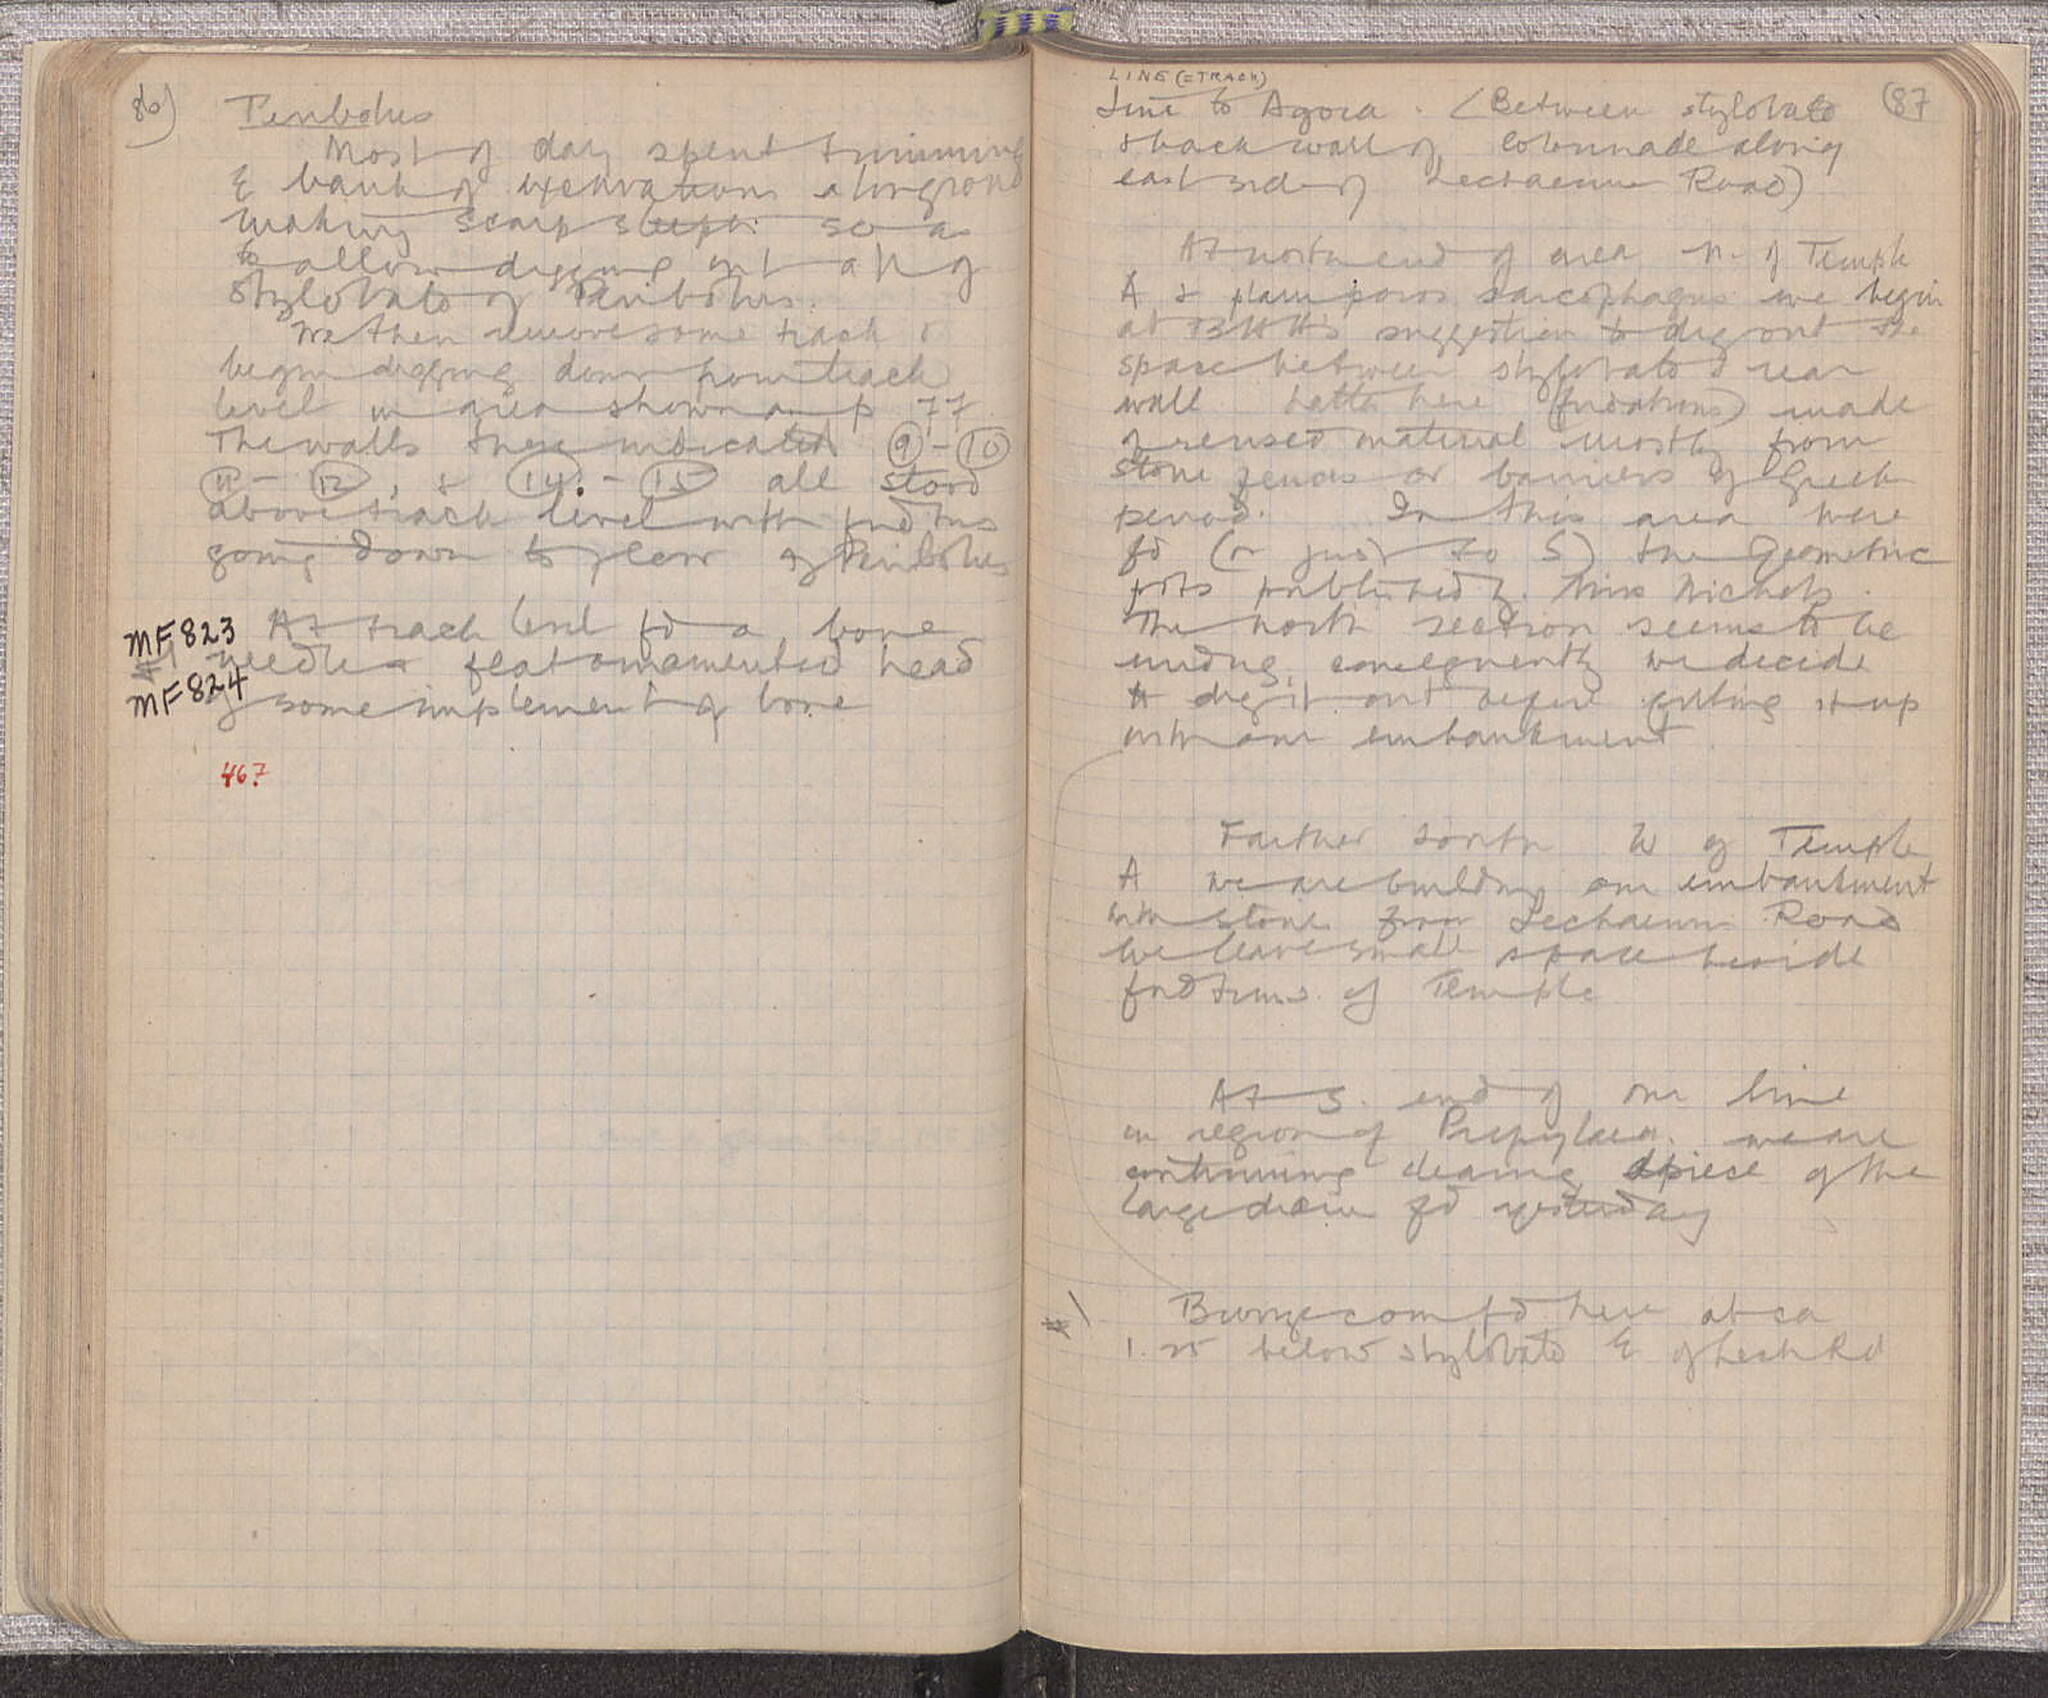 86)
Peribolus
Most of day spent trimming
E bank of excavations along road
making scarp steeper so as
to allow digging out all of
stylobate of Peribolus.
We then remove some track &
begin digging down from track
level in area shown on p 77.
The walls there indicated ⑨-⑩
⑪-⑫, & ⑭-⑮ all stood
above track level with fndtns
going down to floor of Peribolus
MF 823
At track level fd a bone
#1
needle & flat ornamented head
MF 824
of some implement of bone
467
LINE (=TRACK)
Line to Agora. (Between stylobate
(87
& back wall of colonnade along
east side of Lechaeum Road)
At north end of area N. of Temple
A & plain poros sarcophagus we begin
at BHH's suggestion to dig out the
space between stylobate & rear
wall latter here (fndations) made
of reused material mostly from
stone fences or barriers of Greek
period. In this area were
fd (or just to S) the Geometric
pots published by Miss Nichols.
The north section seems to be
undug, consequently we decide
to dig it out before filling it up
with our embankment
Farther south W of Temple
A we are building our embankment
with stone from Lechaeum Road
we leave small space beside
fndtns. of Temple
At S. end of our line
in region of Propylaea. we are
continuing clearing piece of the
large drain fd yesterday
#1
Bronze coin fd here at ca
1.25 below stylobate E of Lech Rd